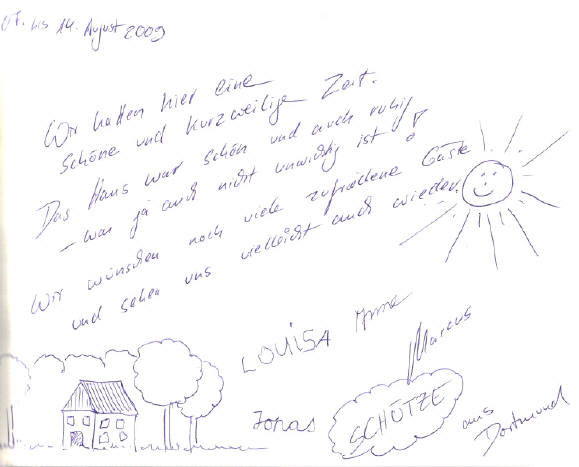 07. bis 14. August 2009
Wir hatten hier eine
schöne und kurzweilige Zeit.
Das Haus war schön und auch ruhig
– war ja auch nicht unwichtig ist!
Wir wünschen noch viele zufriedene Gäste
und sehen uns vielleicht auch wieder.
LOUISA Anna
Marcus
Jonas SCHÜTZE aus
Dortmund